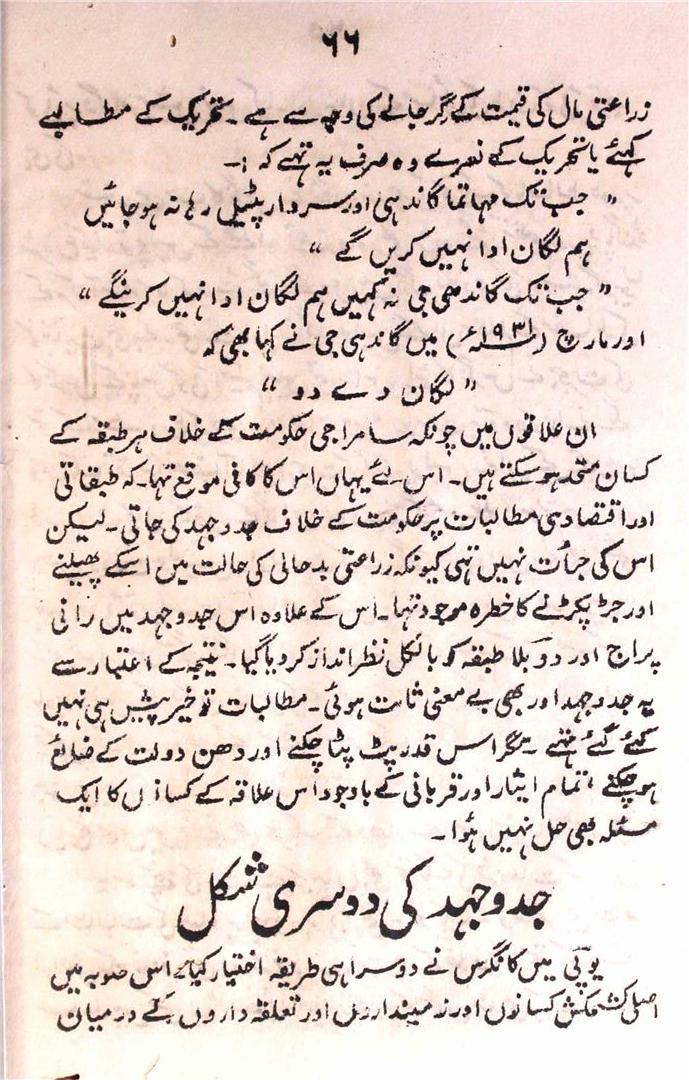 ۶۶
زراعتی مال کی قیمت کے گر جانے کی وجہ سے ہے ۔ تحریک کے مطالبے
کہئے یا تحریک کے نعرے وہ صرف یہ تہے کہ :۔
" جب تک مہاتما گاندہی اور سردار پٹیل رہا نہ ہو جائیں
ہم لگان ادا نہیں کریں گے "
" جب تک گاندھی جی نہ کہیں ہم لگان ادا نہیں کرینگے "
اور مارچ (۱۹۳۱ء) میں گاندہی جی نے کہا بھی کہ
" لگان دے دو "
ان علاقوں میں چونکہ سامراجی حکومت کے خلاف ہر طبقہ کے
کسان متحد ہو سکتے ہیں ۔ اس لئے یہاں اس کا کافی موقع تہا ۔ کہ طبقاتی
اور اقتصادی مطالبات پر حکومت کے خلاف جدوجہد کی جاتی ۔ لیکن
اس کی جرأت نہیں تہی کیونکہ زراعتی بدحالی کی حالت میں اسکے پھیلنے
اور جڑ پکڑنے کا خطرہ موجود تہا ۔ اس کے علاوہ اس جدوجہد میں رانی
پراج اور دوبلا طبقہ کو بالکل نظر انداز کر دیا گیا ۔ نتیجہ کے اعتبار سے
یہ جدوجہد اور بھی بے معنی ثابت ہوئی ۔ مطالبات تو خیر پیش ہی نہیں
کئے گئے تہے ۔ مگر اس قدر پٹ پٹا چکنے اور دھن دولت کے ضائع
ہو چکنے ، تمام ایثار اور قربانی کے باوجود اس علاقہ کے کسانوں کا ایک
مسئلہ بھی حل نہیں ہوا ۔
جدوجہد کی دوسری شکل
یوپی میں کانگرس نے دوسرا ہی طریقہ اختیار کیا ۔ اس صوبہ میں
اصلی کشمکش کسانوں اور زمینداروں اور تعلقہ داروں کے درمیان